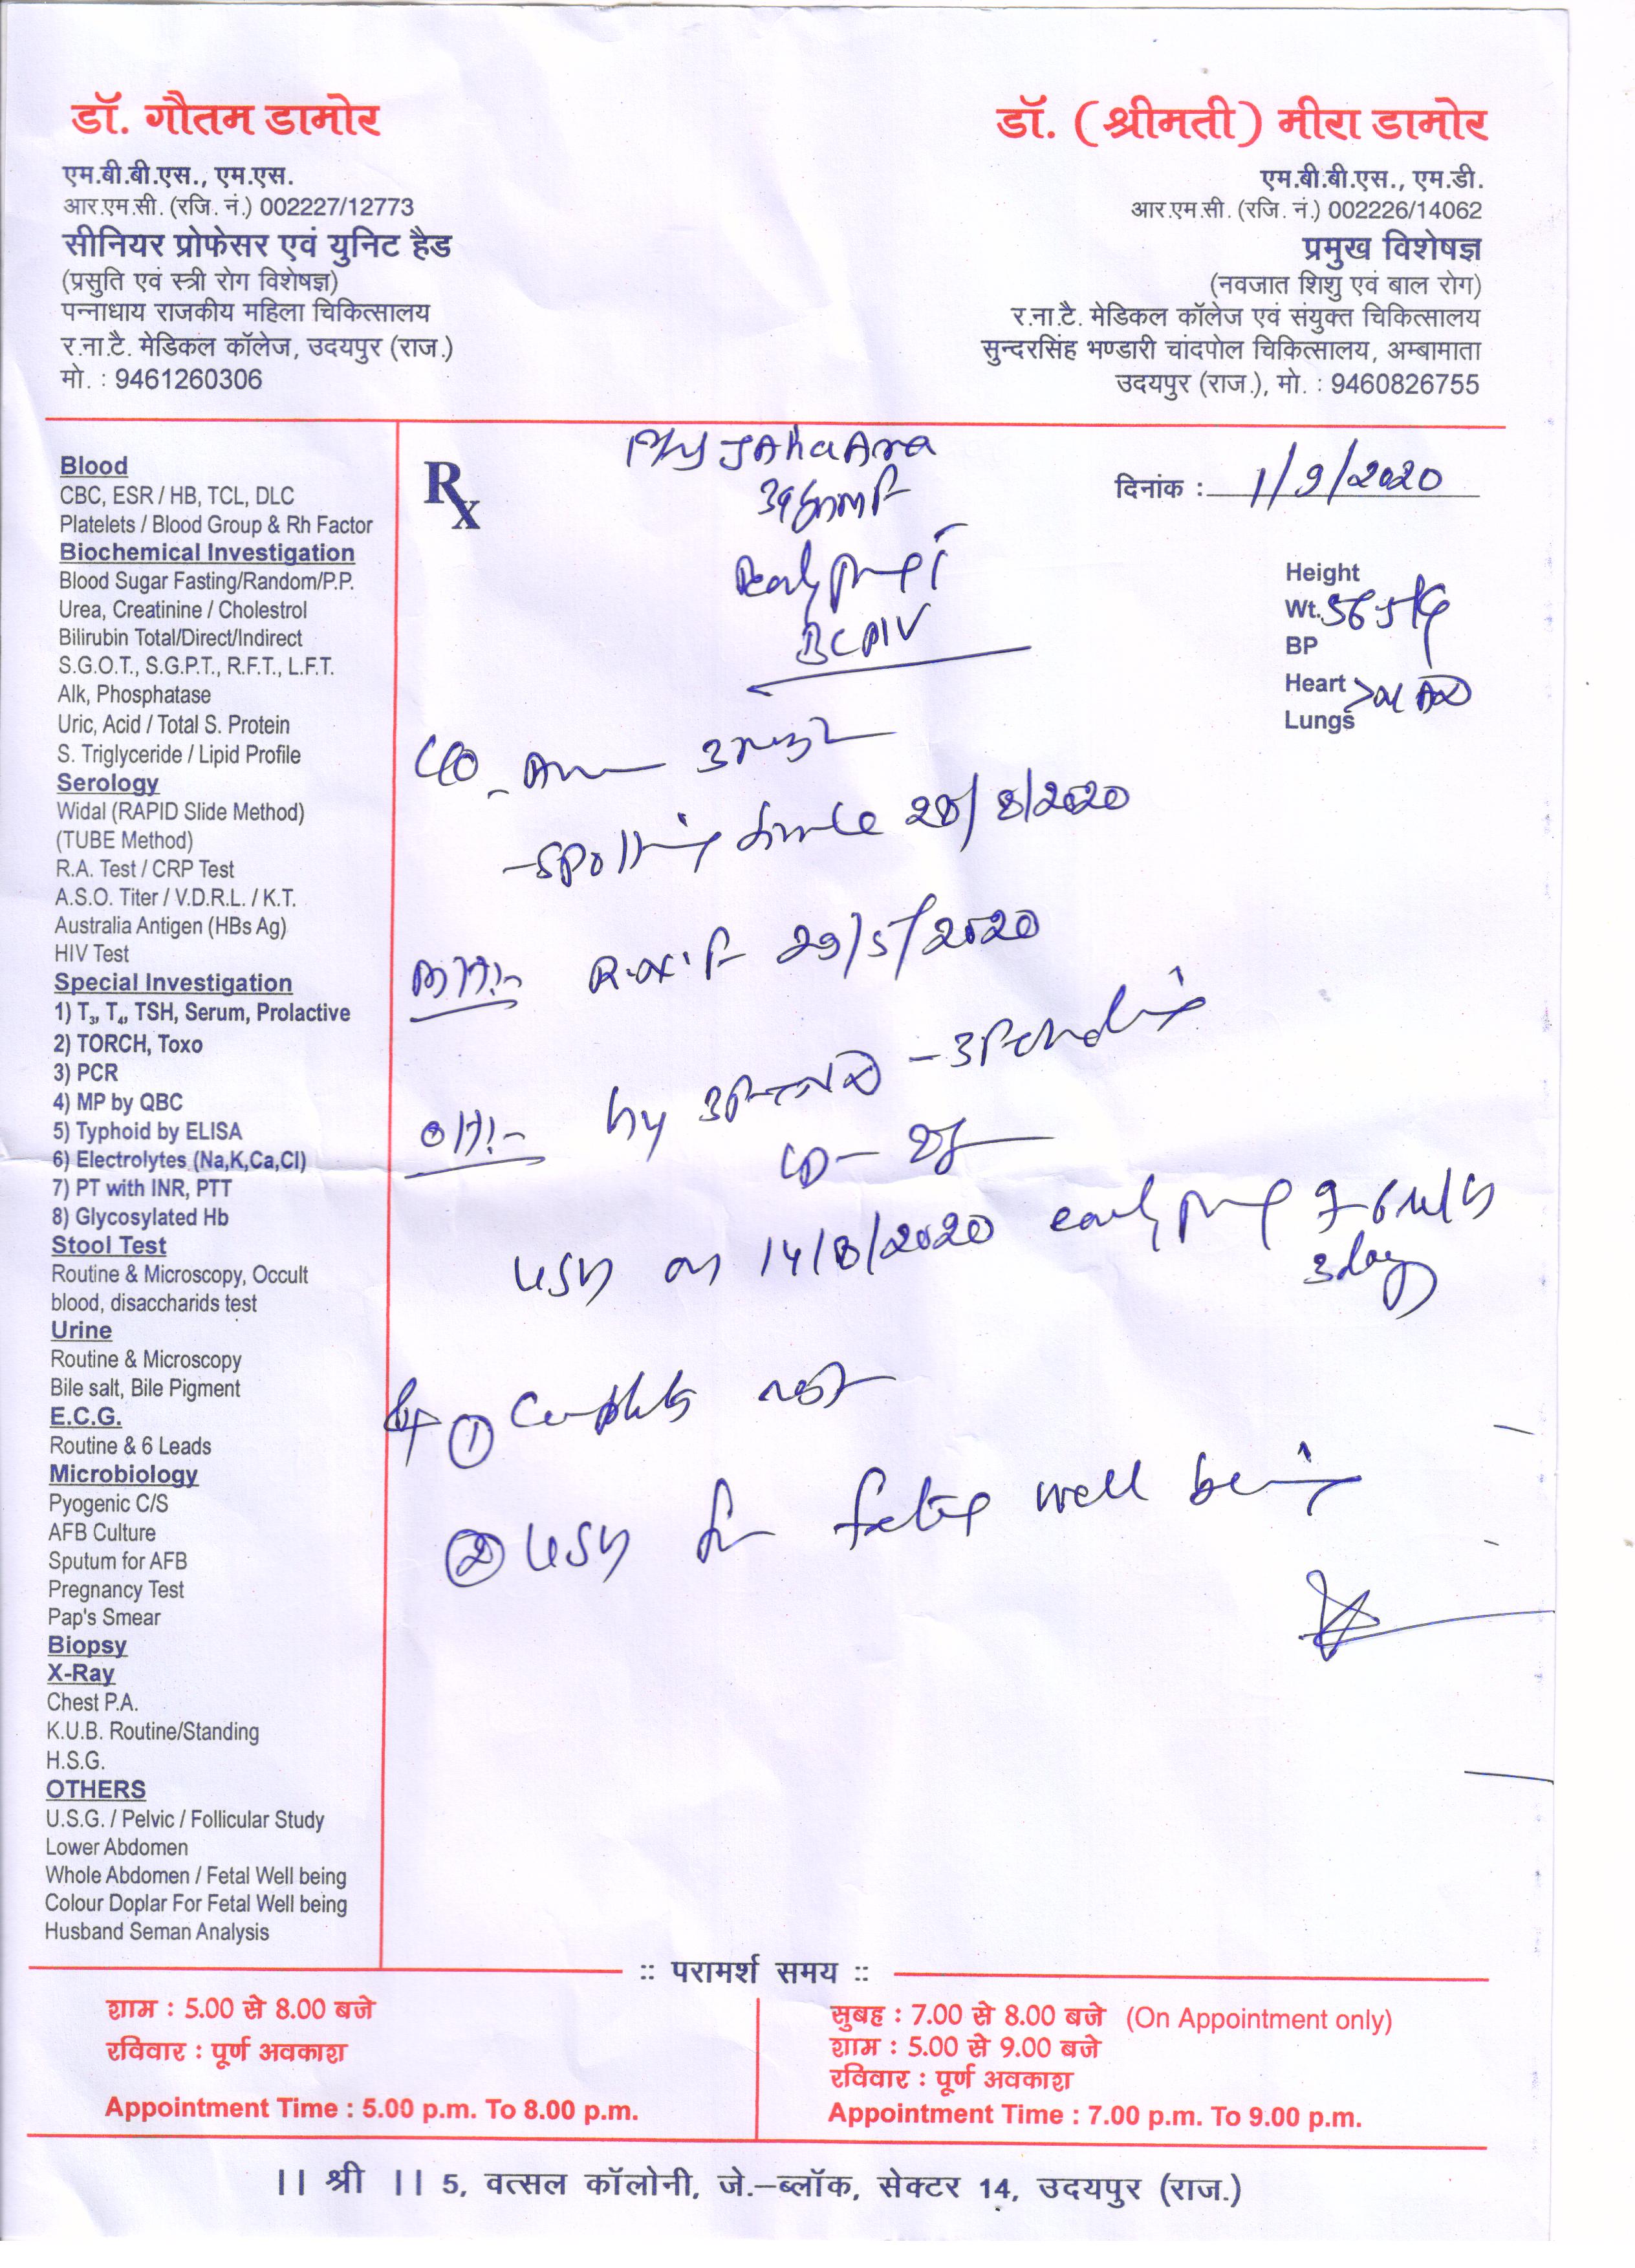 डॉ. गौतम डामोर
एम.बी.बी.एस., एम.एस.
आर.एम.सी. (रजि. नं.) 002227/12773
सीनियर प्रोफेसर एवं युनिट हैड
(प्रसुति एवं स्त्री रोग विशेषज्ञ)
पन्नाधाय राजकीय महिला चिकित्सालय
र.ना.टै. मेडिकल कॉलेज, उदयपुर (राज.)
मो. : 9461260306
डॉ. (श्रीमती) मीरा डामोर
एम.बी.बी.एस., एम.डी.
आर.एम.सी. (रजि. नं.) 002226/14062
प्रमुख विशेषज्ञ
(नवजात शिशु एवं बाल रोग)
र.ना.टै. मेडिकल कॉलेज एवं संयुक्त चिकित्सालय
सुन्दरसिंह भण्डारी चांदपोल चिकित्सालय, अम्बामाता
उदयपुर (राज.), मो. : 9460826755
Blood
CBC, ESR / HB, TCL, DLC
Platelets / Blood Group & Rh Factor
Biochemical Investigation
Blood Sugar Fasting/Random/P.P.
Urea, Creatinine / Cholestrol
Bilirubin Total/Direct/Indirect
S.G.O.T., S.G.P.T., R.F.T., L.F.T.
Alk, Phosphatase
Uric, Acid / Total S. Protein
S. Triglyceride / Lipid Profile
Serology
Widal (RAPID Slide Method)
(TUBE Method)
R.A. Test / CRP Test
A.S.O. Titer / V.D.R.L. / K.T.
Australia Antigen (HBs Ag)
HIV Test
Special Investigation
1) T3, T4, TSH, Serum, Prolactive
2) TORCH, Toxo
3) PCR
4) MP by QBC
5) Typhoid by ELISA
6) Electrolytes (Na,K,Ca,Cl)
7) PT with INR, PTT
8) Glycosylated Hb
Stool Test
Routine & Microscopy, Occult
blood, disaccharids test
Urine
Routine & Microscopy
Bile salt, Bile Pigment
E.C.G.
Routine & 6 Leads
Microbiology
Pyogenic C/S
AFB Culture
Sputum for AFB
Pregnancy Test
Pap's Smear
Biopsy
X-Ray
Chest P.A.
K.U.B. Routine/Standing
H.S.G.
OTHERS
U.S.G. / Pelvic / Follicular Study
Lower Abdomen
Whole Abdomen / Fetal Well being
Colour Doplar For Fetal Well being
Husband Seman Analysis
Rx
JAhaAra
दिनांक : 1/9/2020
early
Height
Wt. 56.5 kg
BP
Heart
Lungs
C/O
- spotting since 28/8/2020
M/H:- 29/5/2020
O/H:-
USG on 14/8/2020 early preg 6
3 day
① Complete rest
② USG for fetal well being
:: परामर्श समय ::
शाम : 5.00 से 8.00 बजे
रविवार : पूर्ण अवकाश
Appointment Time : 5.00 p.m. To 8.00 p.m.
सुबह : 7.00 से 8.00 बजे (On Appointment only)
शाम : 5.00 से 9.00 बजे
रविवार : पूर्ण अवकाश
Appointment Time : 7.00 p.m. To 9.00 p.m.
।। श्री ।। 5, वत्सल कॉलोनी, जे.–ब्लॉक, सेक्टर 14, उदयपुर (राज.)